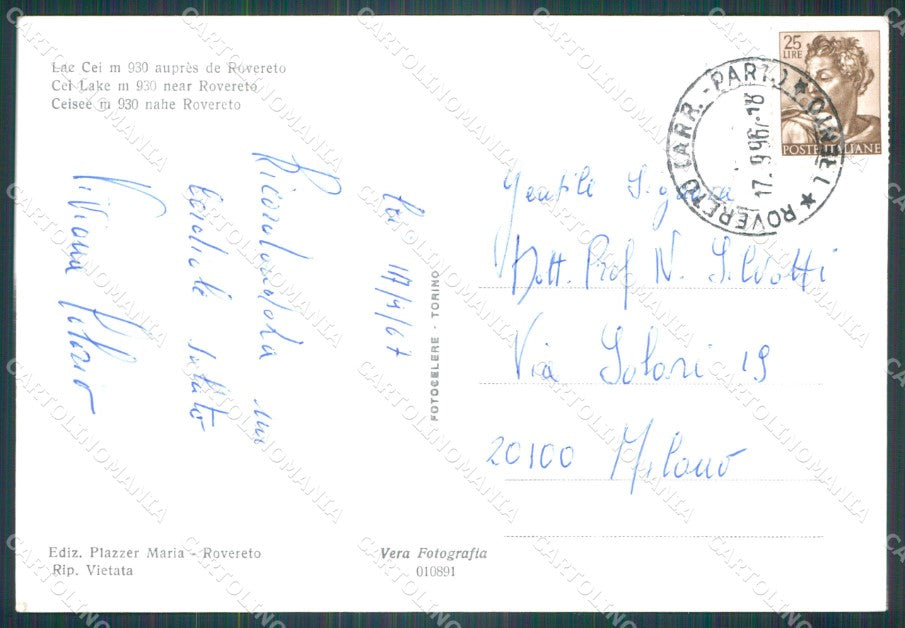 Lac Cei m 930 auprès de Rovereto
Cei Lake m 930 near Rovereto
Ceisee m 930 nahe Rovereto
25
LIRE
POSTE ITALIANE
ROVERETO (ARR. - PART.) * (TRENTO) *
17. 9.967-18
Cei 17/9/67
Ricordandola un
Cordiale saluto
Viviana
Gentile Signora
Dott. Prof N.
Via Solari 19
20100 Milano
FOTOCELERE - TORINO
Ediz. Plazzer Maria - Rovereto
Rip. Vietata
Vera Fotografia
010891
CARTOLINOMANIA